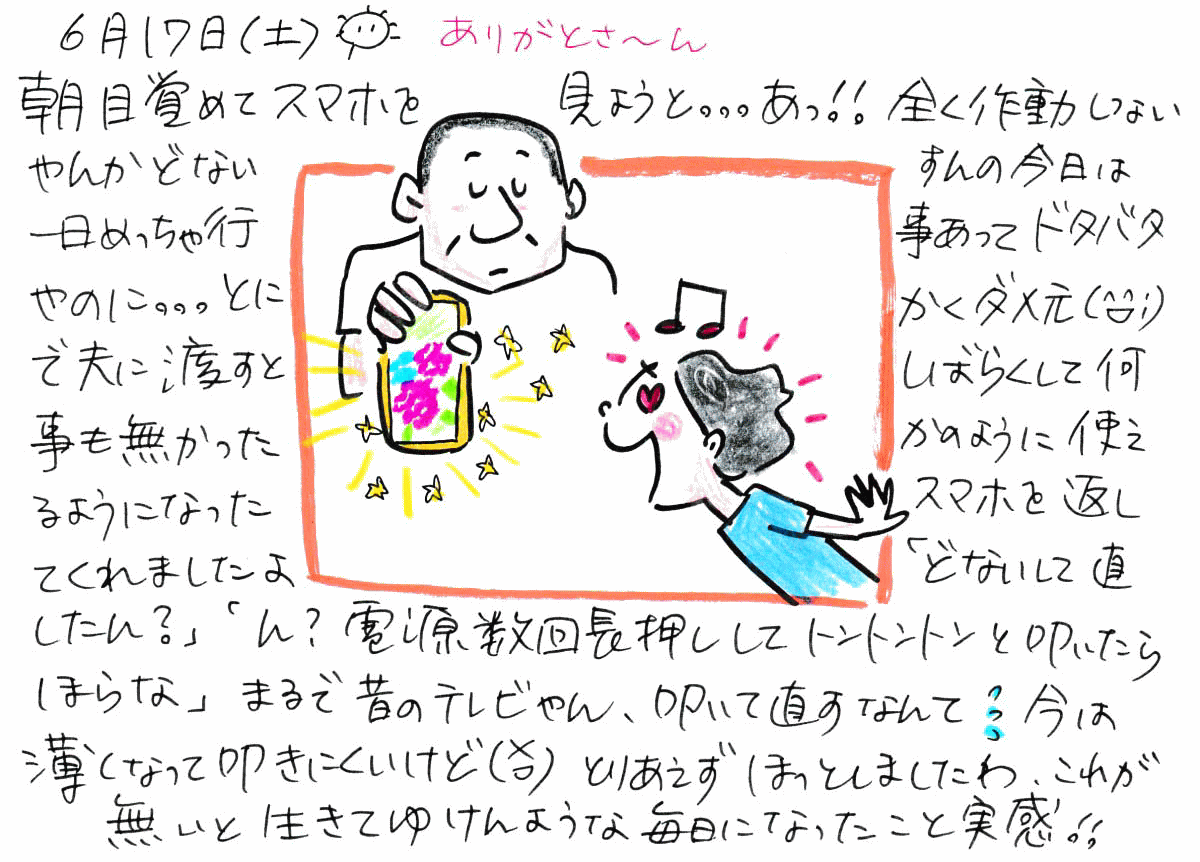 6月17日(土) ありがとさ〜ん
朝目覚めてスマホを 見ようと。。。あっ!! 全く作動しない
やんかどない すんの今日は
一日めっちゃ行 事あってドタバタ
やのに。。。とに かくダメ元(^^;)
で夫に渡すと しばらくして何
事も無かった かのように使え
るようになった スマホを返し
てくれましたよ 「どないして直
したん?」「ん?電源数回長押ししてトントントンと叩いたら
ほらな」まるで昔のテレビやん、叩いて直すなんて 今は
薄くなって叩きにくいけど(笑) とりあえずほっとしましたわ、これが
無いと生きてゆけんような毎日になったこと実感!!